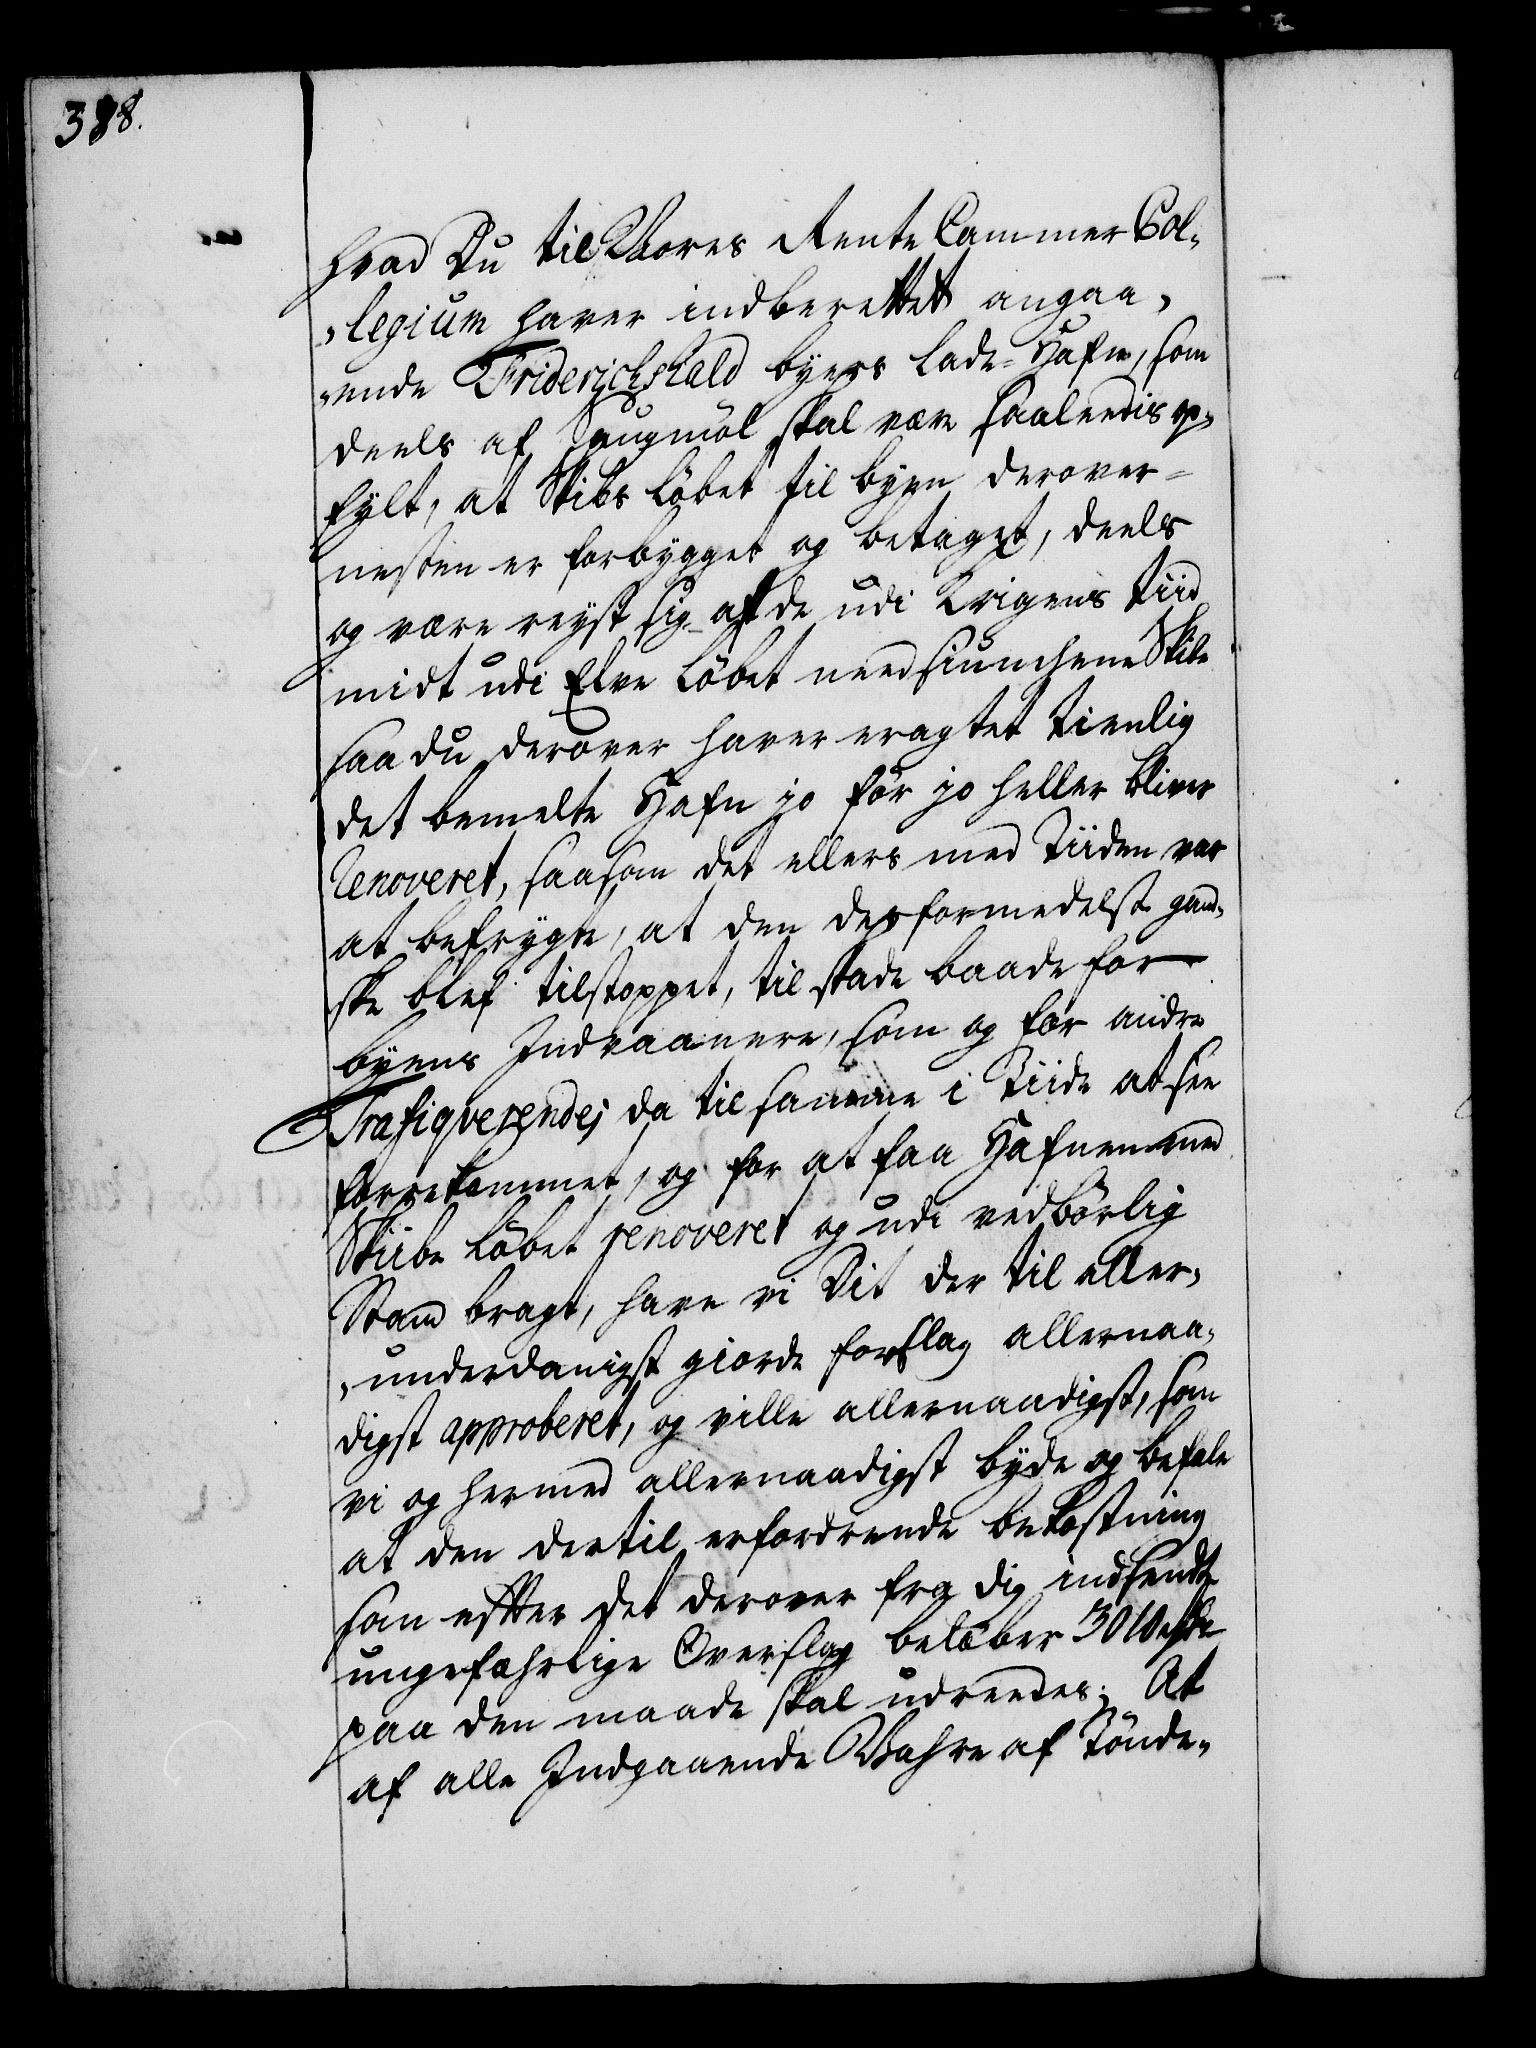 388.
hvad Du til Vores Rente Cammer Col-
legium haver indberettet angaa-
ende Friderichshald byens lade-Hafn, som
deels af Saugmöl skal være saaledis op-
fylt, at Skibs Löbet til byen derover
nesten er forbygget og betaget, deels
og være reyst sig af de udi Krigens tiid
midt udi Elve Löbet needsiunchene Skibe
saa du derover haver eragtet tienlig
det bemelte Hafn jo för jo heller bliver
renoveret, saasom det ellers med Tiiden var
at befrygte, at den desformedelst gand-
ske blef tilstoppet, til skade baade for
byens Indvaanere, som og for andre
Trafiqverende; da til samme i Tiide at see
forrekommet, og for at faa Hafnen med
Skibe Löbet renoveret og udi vedbörlig
Stand bragt, have vi Dit der til aller-
underdanigst giorde forslag allernaa-
digst approberet, og ville allernaadigst, som
vi og hermed allernaadigst byde og befale
at den dertil erfordrende bekostning
som efter det derover fra dig indsendte
ungefehrlige Overslag belöber 3010 rdr
paa den maade skal udreedes; At
af alle Indgaaende Vahre af Tönde-